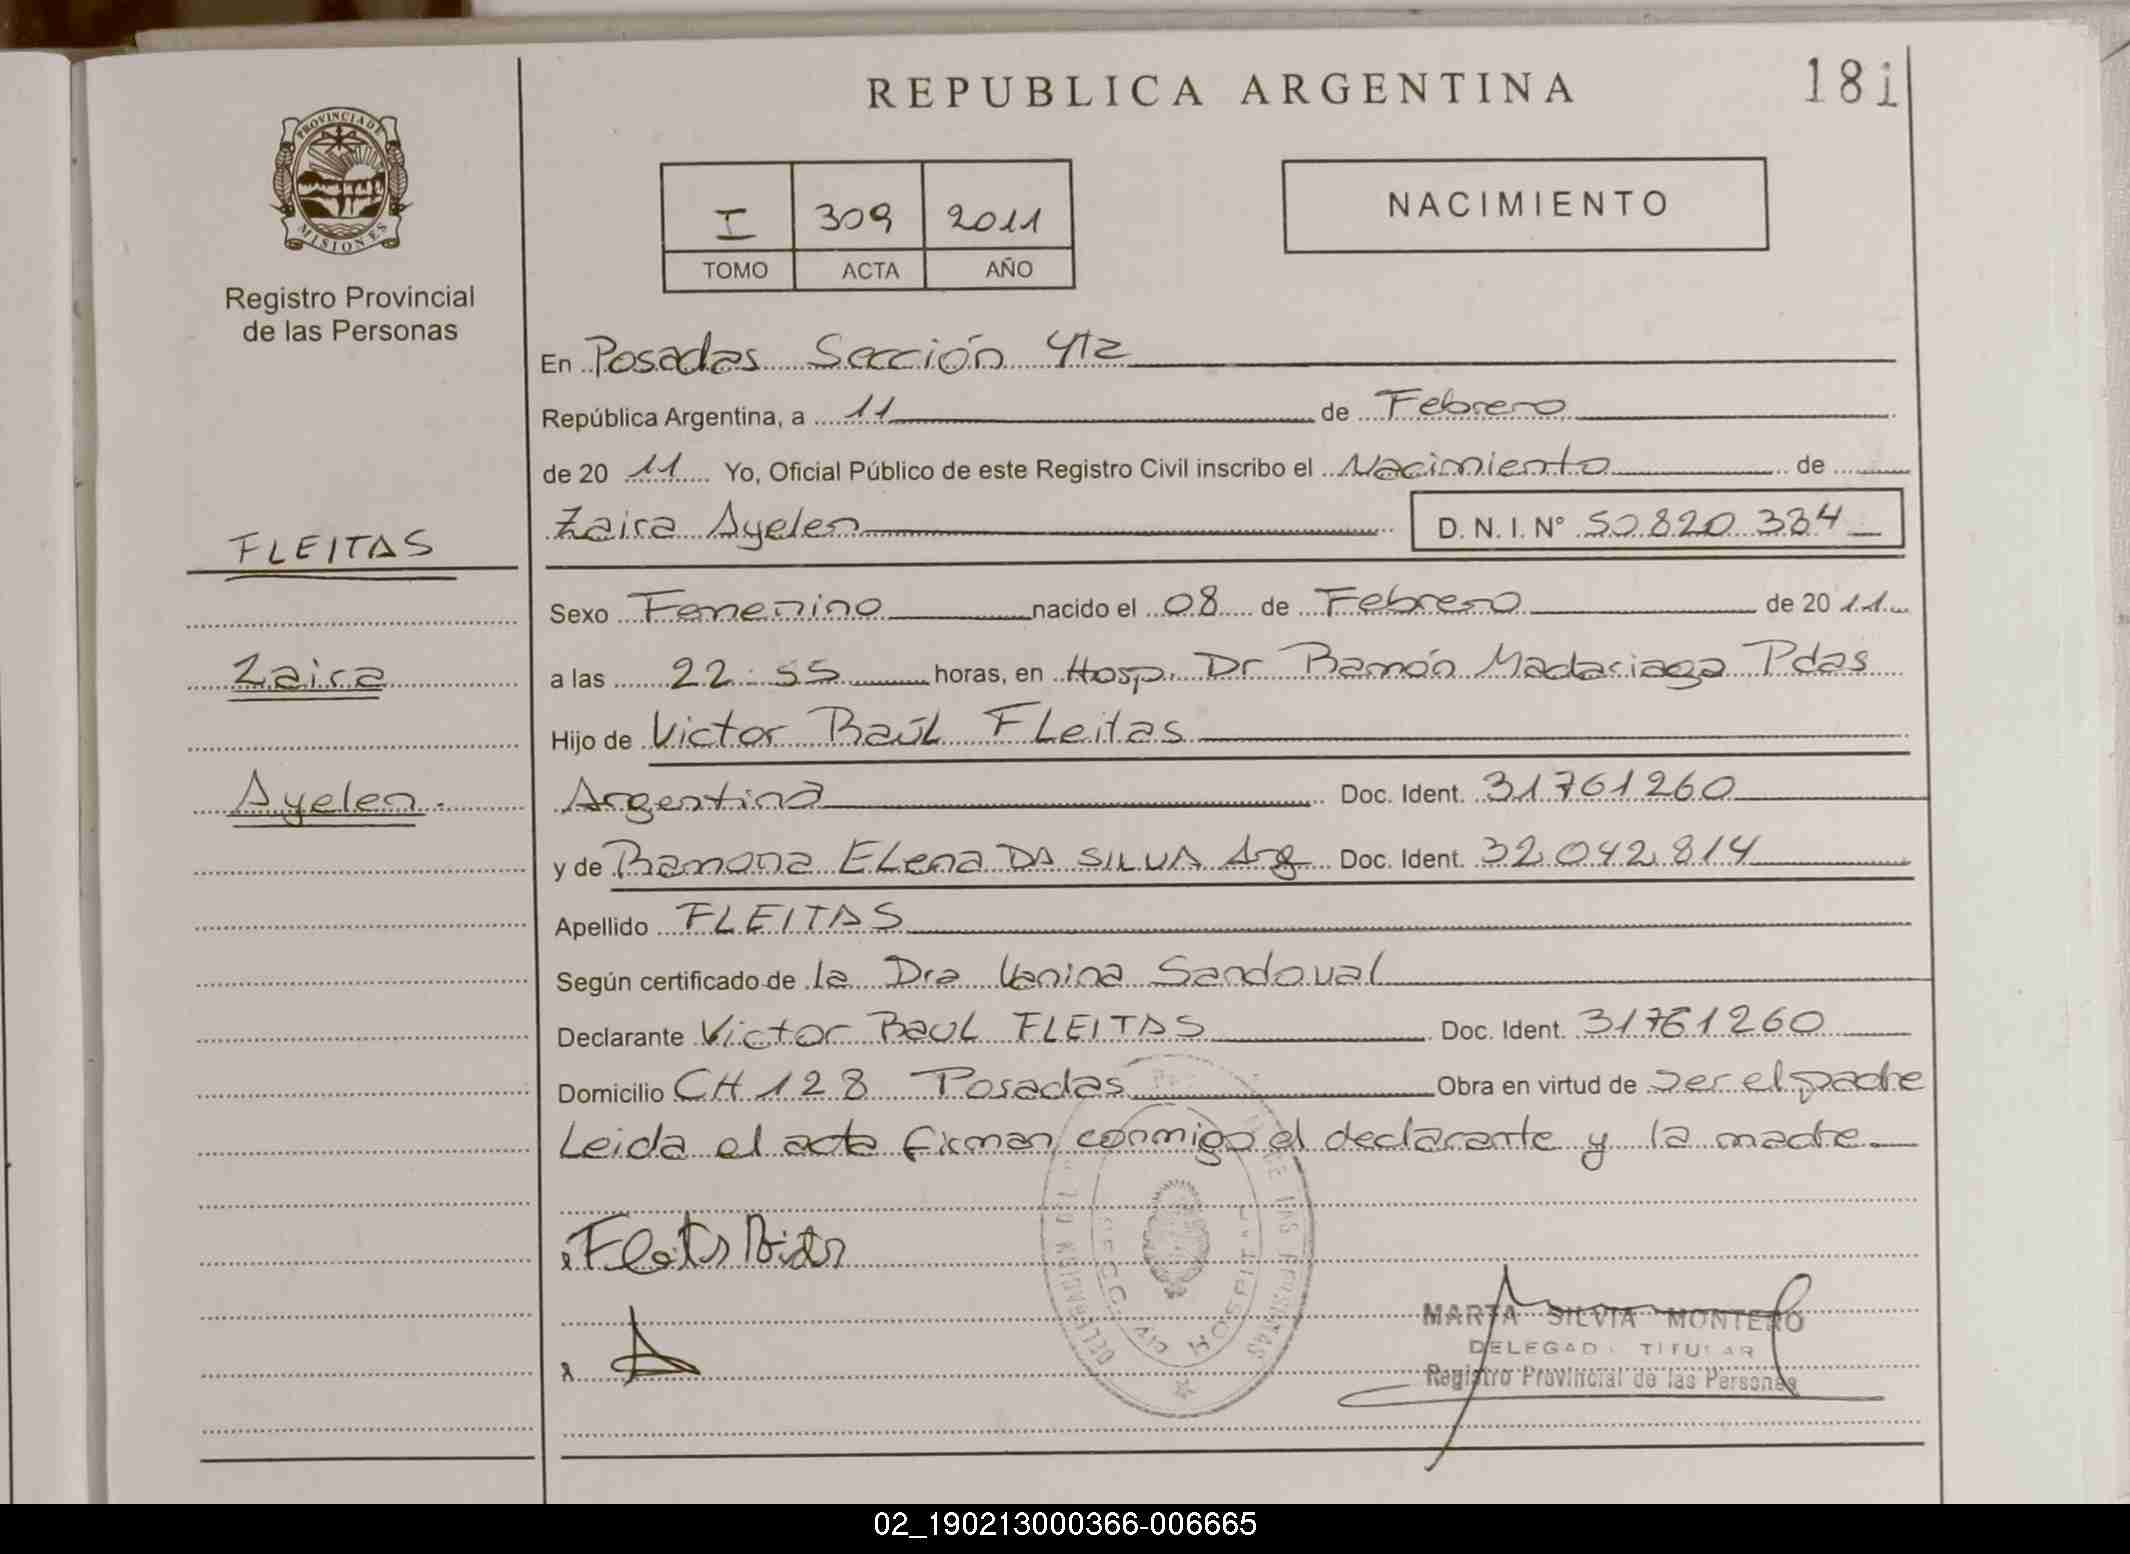 REPUBLICA ARGENTINA
181
PROVINCIA DE
MISIONES
Registro Provincial
de las Personas
I 309 2011
TOMO ACTA AÑO
NACIMIENTO
En Posadas Sección 4ta
República Argentina, a 11 de Febrero
de 20 11 Yo, Oficial Público de este Registro Civil inscribo el Nacimiento de
Zaira Ayelen D. N. I. N° 50.820.334
FLEITAS
Zaira
Ayelen.
Sexo Femenino nacido el 08 de Febrero de 20 11
a las 22:55 horas, en Hosp. Dr Ramón Madariaga Pdas
Hijo de Victor Raúl FLeitas
Argentina Doc. Ident. 31761260
y de Ramona ELena DA SILVA Arg Doc. Ident. 32.042.814
Apellido FLEITAS
Según certificado de la Dra Vanina Sandoval
Declarante Victor RauL FLEITAS Doc. Ident. 31761260
Domicilio CH 128 Posadas Obra en virtud de ser el padre
Leida el acta firman conmigo el declarante y la madre
DE LAS PERSONAS
DELEGACION
SECC. HOSPITAL
MARTA SILVIA MONTERO
DELEGADA TITULAR
Registro Provincial de las Personas
02_190213000366-006665